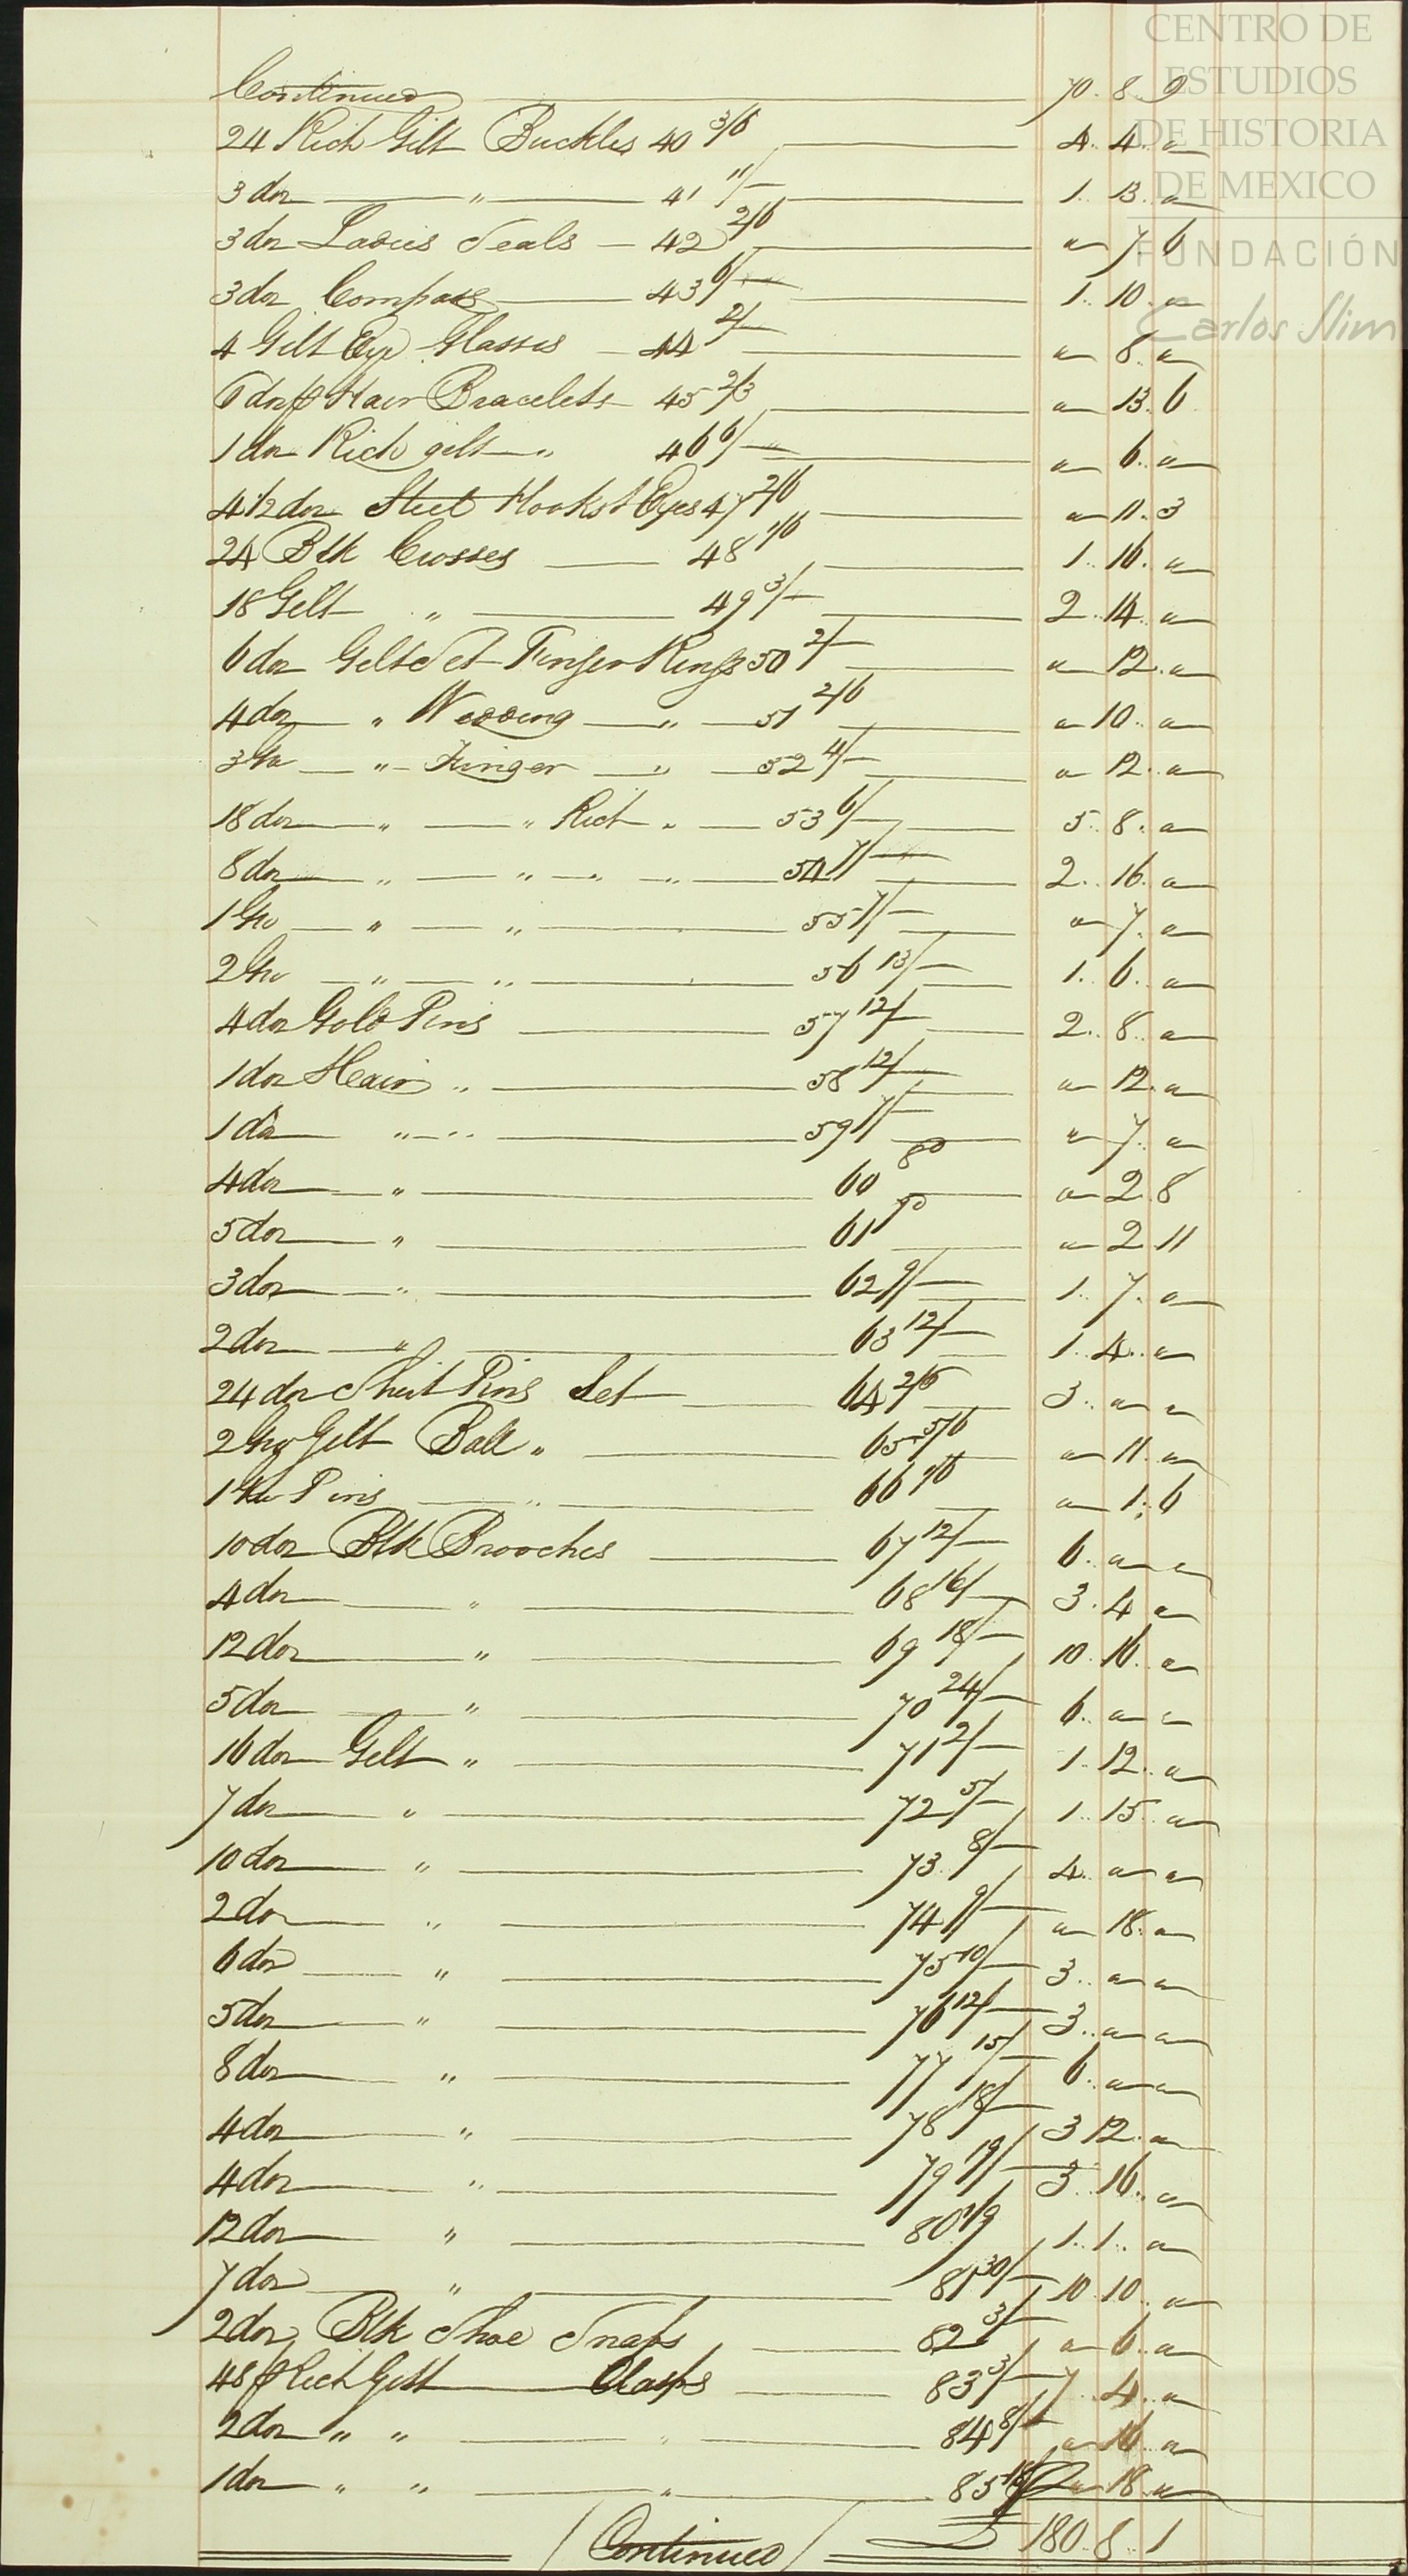 CENTRO DE
ESTUDIOS
DE HISTORIA
DE MEXICO
FUNDACIÓN
Carlos Slim
Continued 70. 8. 9
24 Rich Gilt Buckles 40 3/6 4. 4. "
3 doz " 41 11/- 1. 13. "
3 doz Ladies Seals 42 2/6 " 7 6
3 doz Compass 43 6/- 1. 10. "
4 Gilt Eye Glasses 44 2/- " 8. "
6 doz p Hair Bracelets 45 2/3 " 13. 6
1 doz Rich gilt " 46 6/- " 6. "
4 1/2 doz Steel Hooks & Eyes 47 2/6 " 11. 3
24 Blk Crosses 48 1/6 1. 16. "
18 Gilt " 49 3/- 2. 14. "
6 doz Gilt Set Finger Rings 50 2/- " 12. "
4 doz " Wedding " 51 2/6 " 10. "
3 Gro " Finger " 52 4/- " 12. "
18 doz " " Rich " 53 6/- 5. 8. "
8 doz " " " " 54 7/- 2. 16. "
1 Gro " " 55 7/- " 7. "
2 Gro " " 56 13/- 1. 6. "
4 doz Gold Pins 57 12/- 2. 8. "
1 doz Hair " 58 12/- " 12. "
1 do " " 59 7/- " 7. "
4 doz " 60 8d " 2 8
5 doz " 61 7d " 2 11
3 doz " 62 9/- 1. 7. "
2 doz " 63 12/- 1. 4. "
24 doz Shirt Pins Set 64 2/6 3. " "
2 Gro Gilt Ball " 65 5/6 " 11. "
1 Gro Pins " 66 1/6 " 1. 6
10 doz Blk Brooches 67 12/- 6. " "
4 doz " 68 16/- 3. 4 "
12 doz " 69 18/- 10. 16. "
5 doz " 70 24/- 6. " "
16 doz Gilt " 71 2/- 1. 12. "
7 doz " 72 5/- 1. 15. "
10 doz " 73 8/- 4. " "
2 doz " 74 9/- " 18. "
6 doz " 75 10/- 3. " "
5 doz " 76 12/- 3. " "
8 doz " 77 15/- 6. " "
4 doz " 78 18/- 3 12. "
4 doz " 79 19/- 3. 16. "
12 doz " 80 1/9 1. 1. "
7 doz " 81 30/- 10. 10. "
2 doz Blk Shoe Snaps 82 3/- " 6. "
48 p Rich Gilt Clasps 83 3/- 7. 4. "
2 doz " " " 84 8/- " 16. "
1 doz " " " 85 18/- " 18. "
/ Continued / £ 180. 8. 1